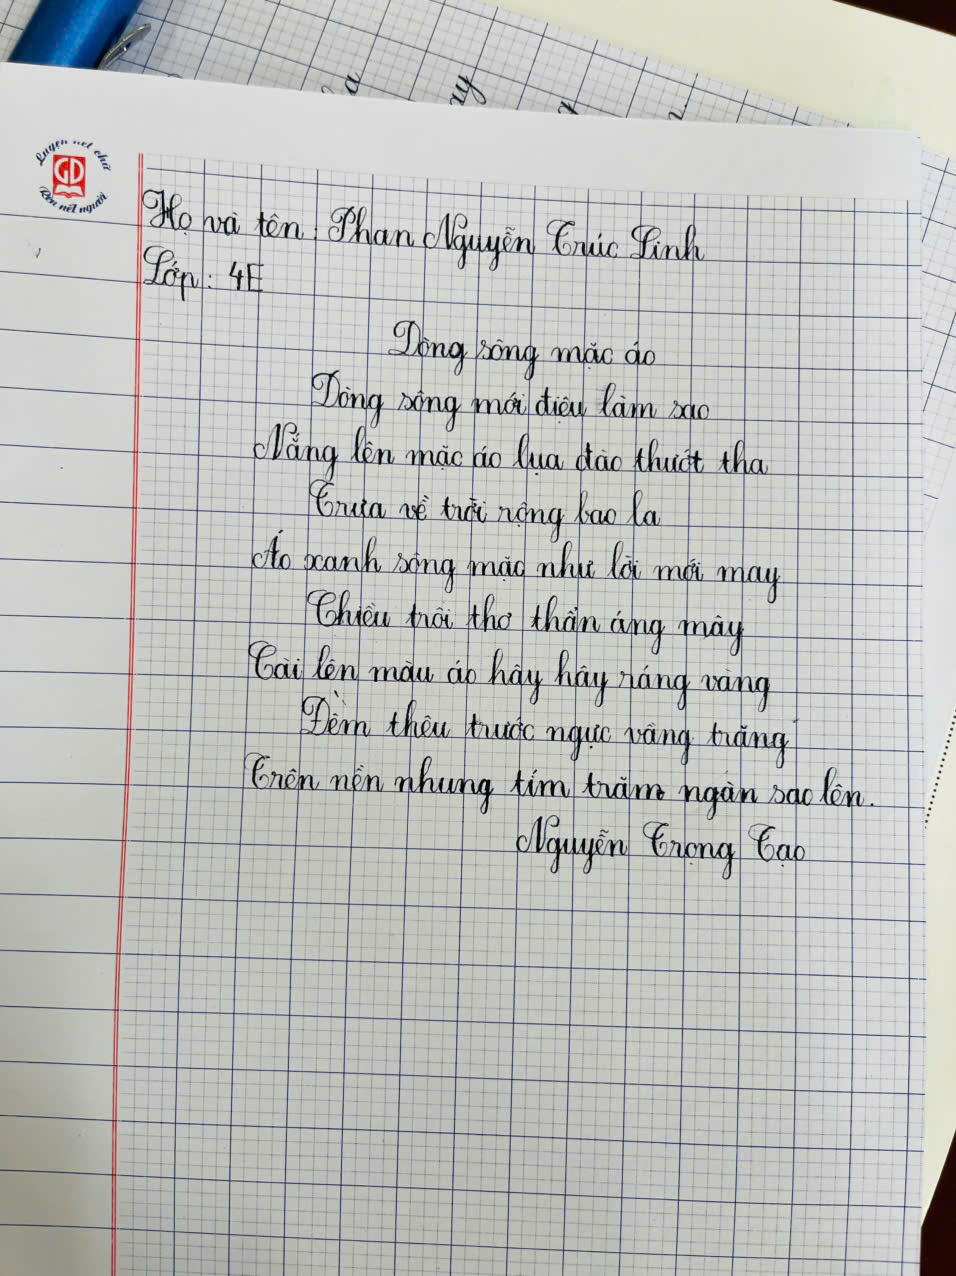 Luyện nét chữ
GD
Rèn nết người
Họ và tên: Phan Nguyễn Trúc Linh
Lớp: 4E
Dòng sông mặc áo
Dòng sông mới điệu làm sao
Nắng lên mặc áo lụa đào thướt tha
Trưa về trời rộng bao la
Áo xanh sông mặc như lời mới may
Chiều trôi thơ thẩn áng mây
Cài lên màu áo hây hây ráng vàng
Đêm thêu trước ngực vầng trăng
Trên nền nhung tím trăm ngàn sao lên.
Nguyễn Trọng Tạo